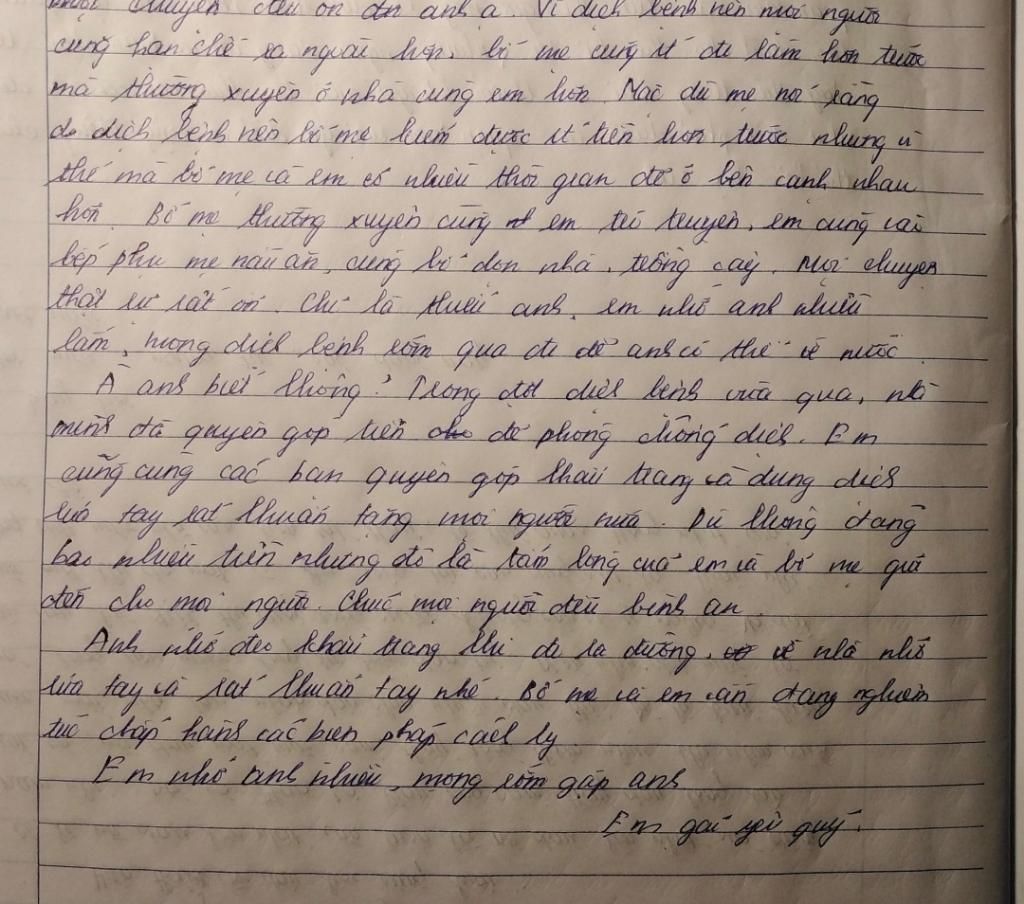 chuyện đều ổn anh ạ. Vì dịch bệnh nên mọi người
cũng hạn chế ra ngoài hơn, bố mẹ cũng ít đi làm hơn trước
mà thường xuyên ở nhà cùng em hơn. Mặc dù mẹ nói rằng
do dịch bệnh nên bố mẹ kiếm được ít tiền hơn trước nhưng vì
thế mà bố mẹ và em có nhiều thời gian để ở bên cạnh nhau
hơn. Bố mẹ thường xuyên cùng em đọc truyện, em cùng vào
bếp phụ mẹ nấu ăn, cùng bố dọn nhà, trồng cây. Mọi chuyện
thật sự rất ổn. Chỉ là thiếu anh, em nhớ anh nhiều
lắm, mong dịch bệnh sớm qua đi để anh có thể về nước.
À anh biết không? Trong đợt dịch bệnh vừa qua, nhà
mình đã quyên góp tiền để phòng chống dịch. Em
cũng cùng các bạn quyên góp khẩu trang và dung dịch
rửa tay sát khuẩn tặng mọi người nữa. Dù không đáng
bao nhiêu tiền nhưng đó là tấm lòng của em và bố mẹ gửi
đến cho mọi người. Chúc mọi người đều bình an.
Anh nhớ đeo khẩu trang khi đi ra đường, về nhà nhớ
rửa tay và sát khuẩn tay nhé. Bố mẹ và em vẫn đang nghiêm
túc chấp hành các biện pháp cách ly
Em nhớ anh nhiều, mong sớm gặp anh
Em gái yêu quý.